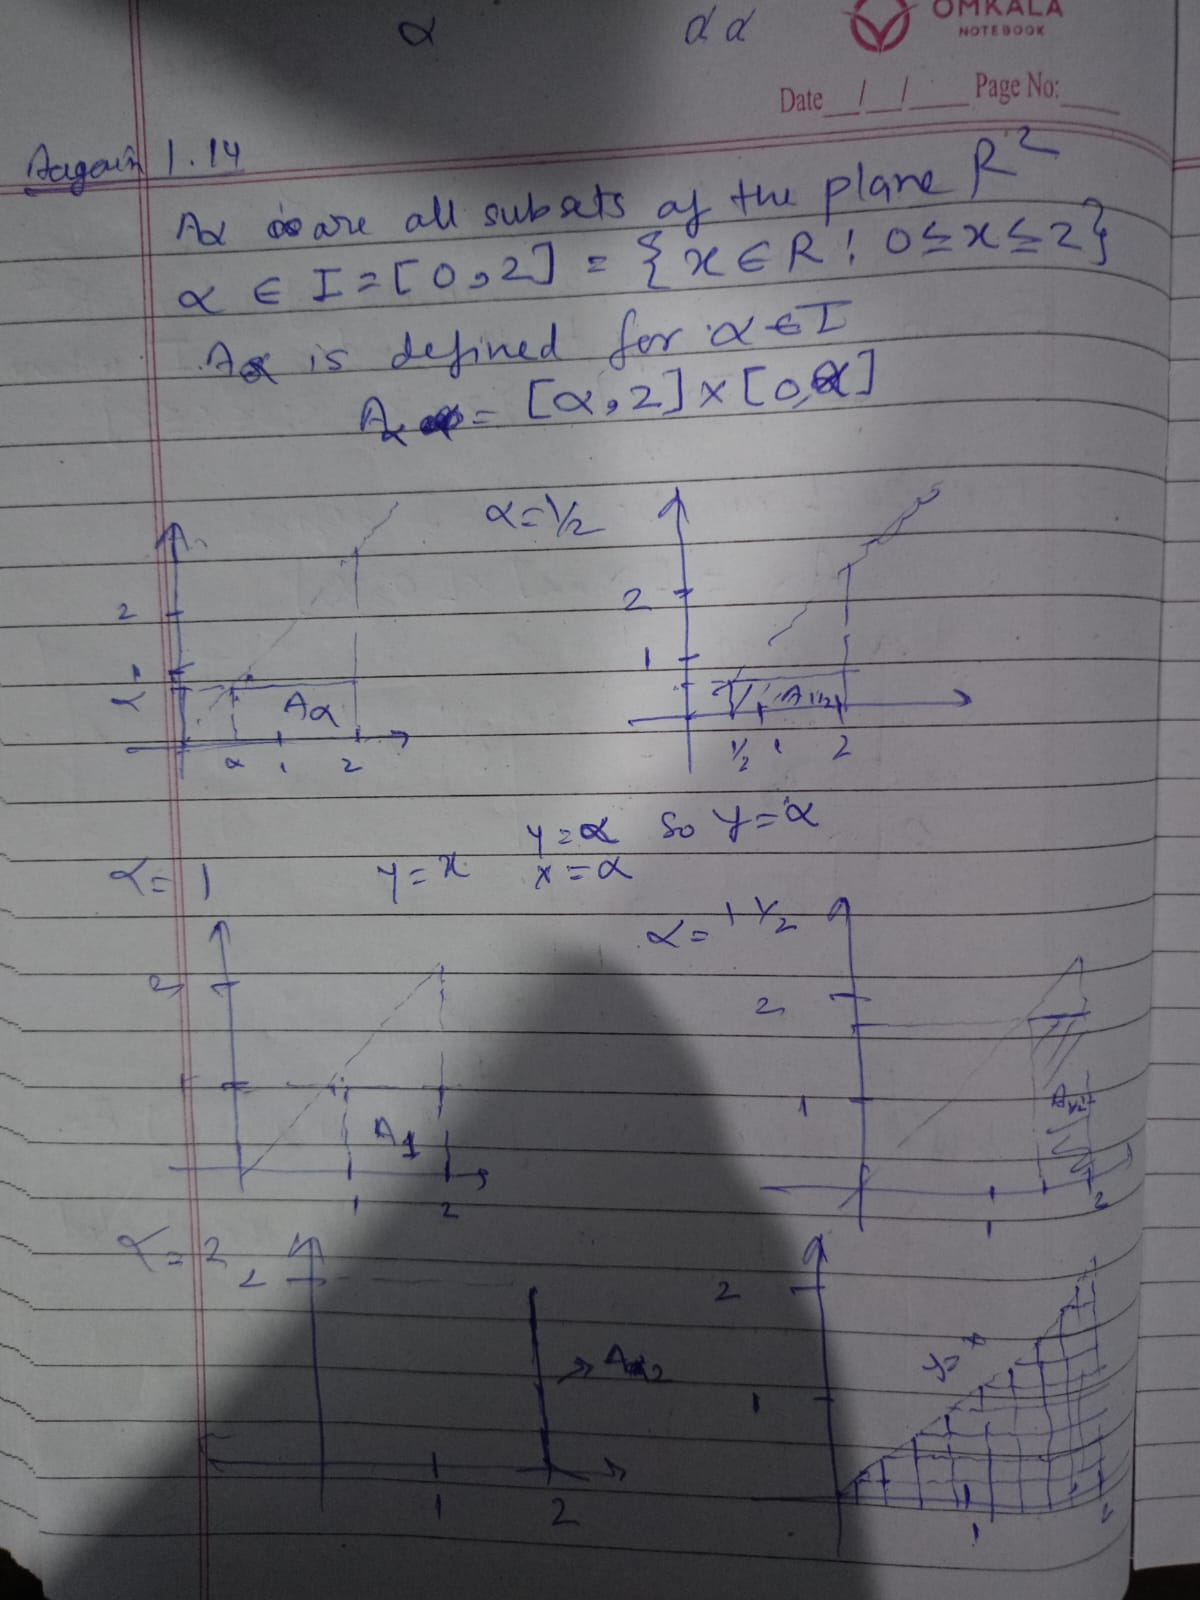 α   α α
OMKALA
NOTEBOOK
Date __/__/____ Page No:____
Aagain 1.14
Aα are all subsets of the plane R²
α ∈ I = [0,2] = {x ∈ R ! 0 ≤ x ≤ 2}
Aα is defined for α ∈ I
Aα = [α,2] × [0,α]
α = 1/2
2
1
α
Aα
α 1 2
2
1
A1/2
1/2 1 2
y = α so y = α
y = x x = α
α = 1
2
1
A1
1 2
α = 1 1/2
2
1
1 2
α = 2
2
A2
1 2
2
y = x
1
1 2